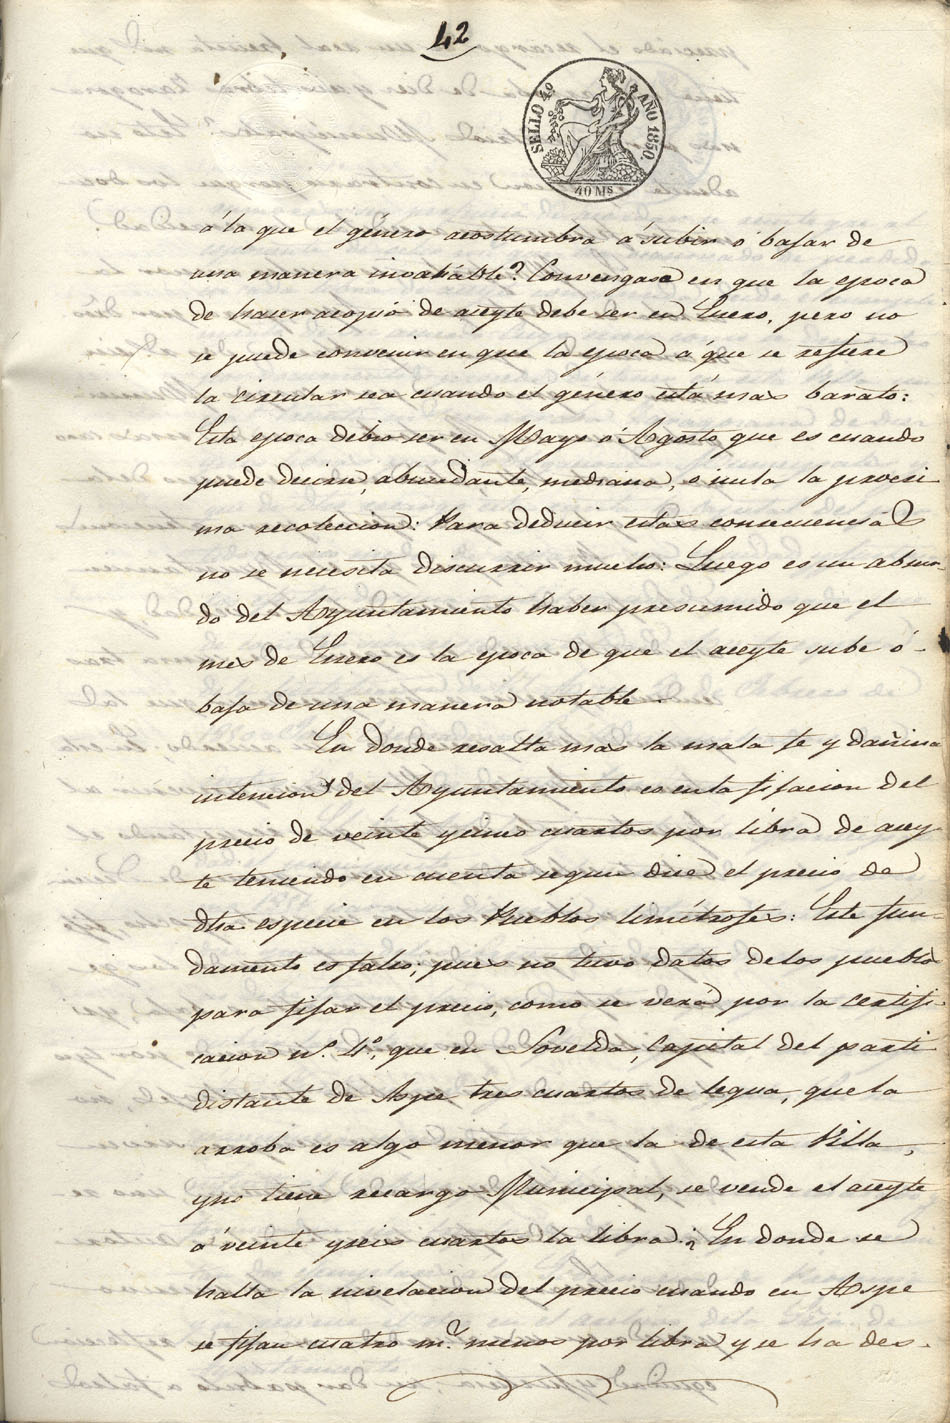 42
SELLO 4º AÑO 1850
40 Ms
á la que el género acostumbra á subir ó bajar de
una manera inovable? Convengase en que la epoca
de haser acopio de aceyte debe ser en Enero, pero no
se puede convenir en que la epoca á que se refiere
la circular sea cuando el género está mas barato:
Esta epoca debio ser en Mayo ó Agosto que es cuando
puede decirse, abundante, mediana, o nula la procsi
ma recoleccion: Para deducir estas consecuencias
no se necesita discurrir mucho: Luego es un absur-
do del Ayuntamiento haber presumido que el
mes de Enero es la epoca de que el aceyte sube ó
baja de una manera notable.
En donde resalta mas la mala fe y dañina
intencion del Ayuntamiento es en la fijacion del
precio de veinte y cinco cuartos por libra de acey
te teniendo en cuenta segun dice el precio de
dha especie en los Pueblos limítrofes: Este fun-
damento es falso, pues no tuvo datos de los pueblos
para fijar el precio, como se verá por la certifi-
cacion nº. 4º, que en Novelda, Capital del parti
distante de Aspe tres cuartos de legua, que la
arroba es algo menor que la de esta Villa,
y no tiene recargo Municipal, se vende el aceyte
á veinte y seis cuartos la libra ¿En donde se
halla la nivelacion del precio cuando en Aspe
se fijan cuatro ms. menos por libra y se ha des-